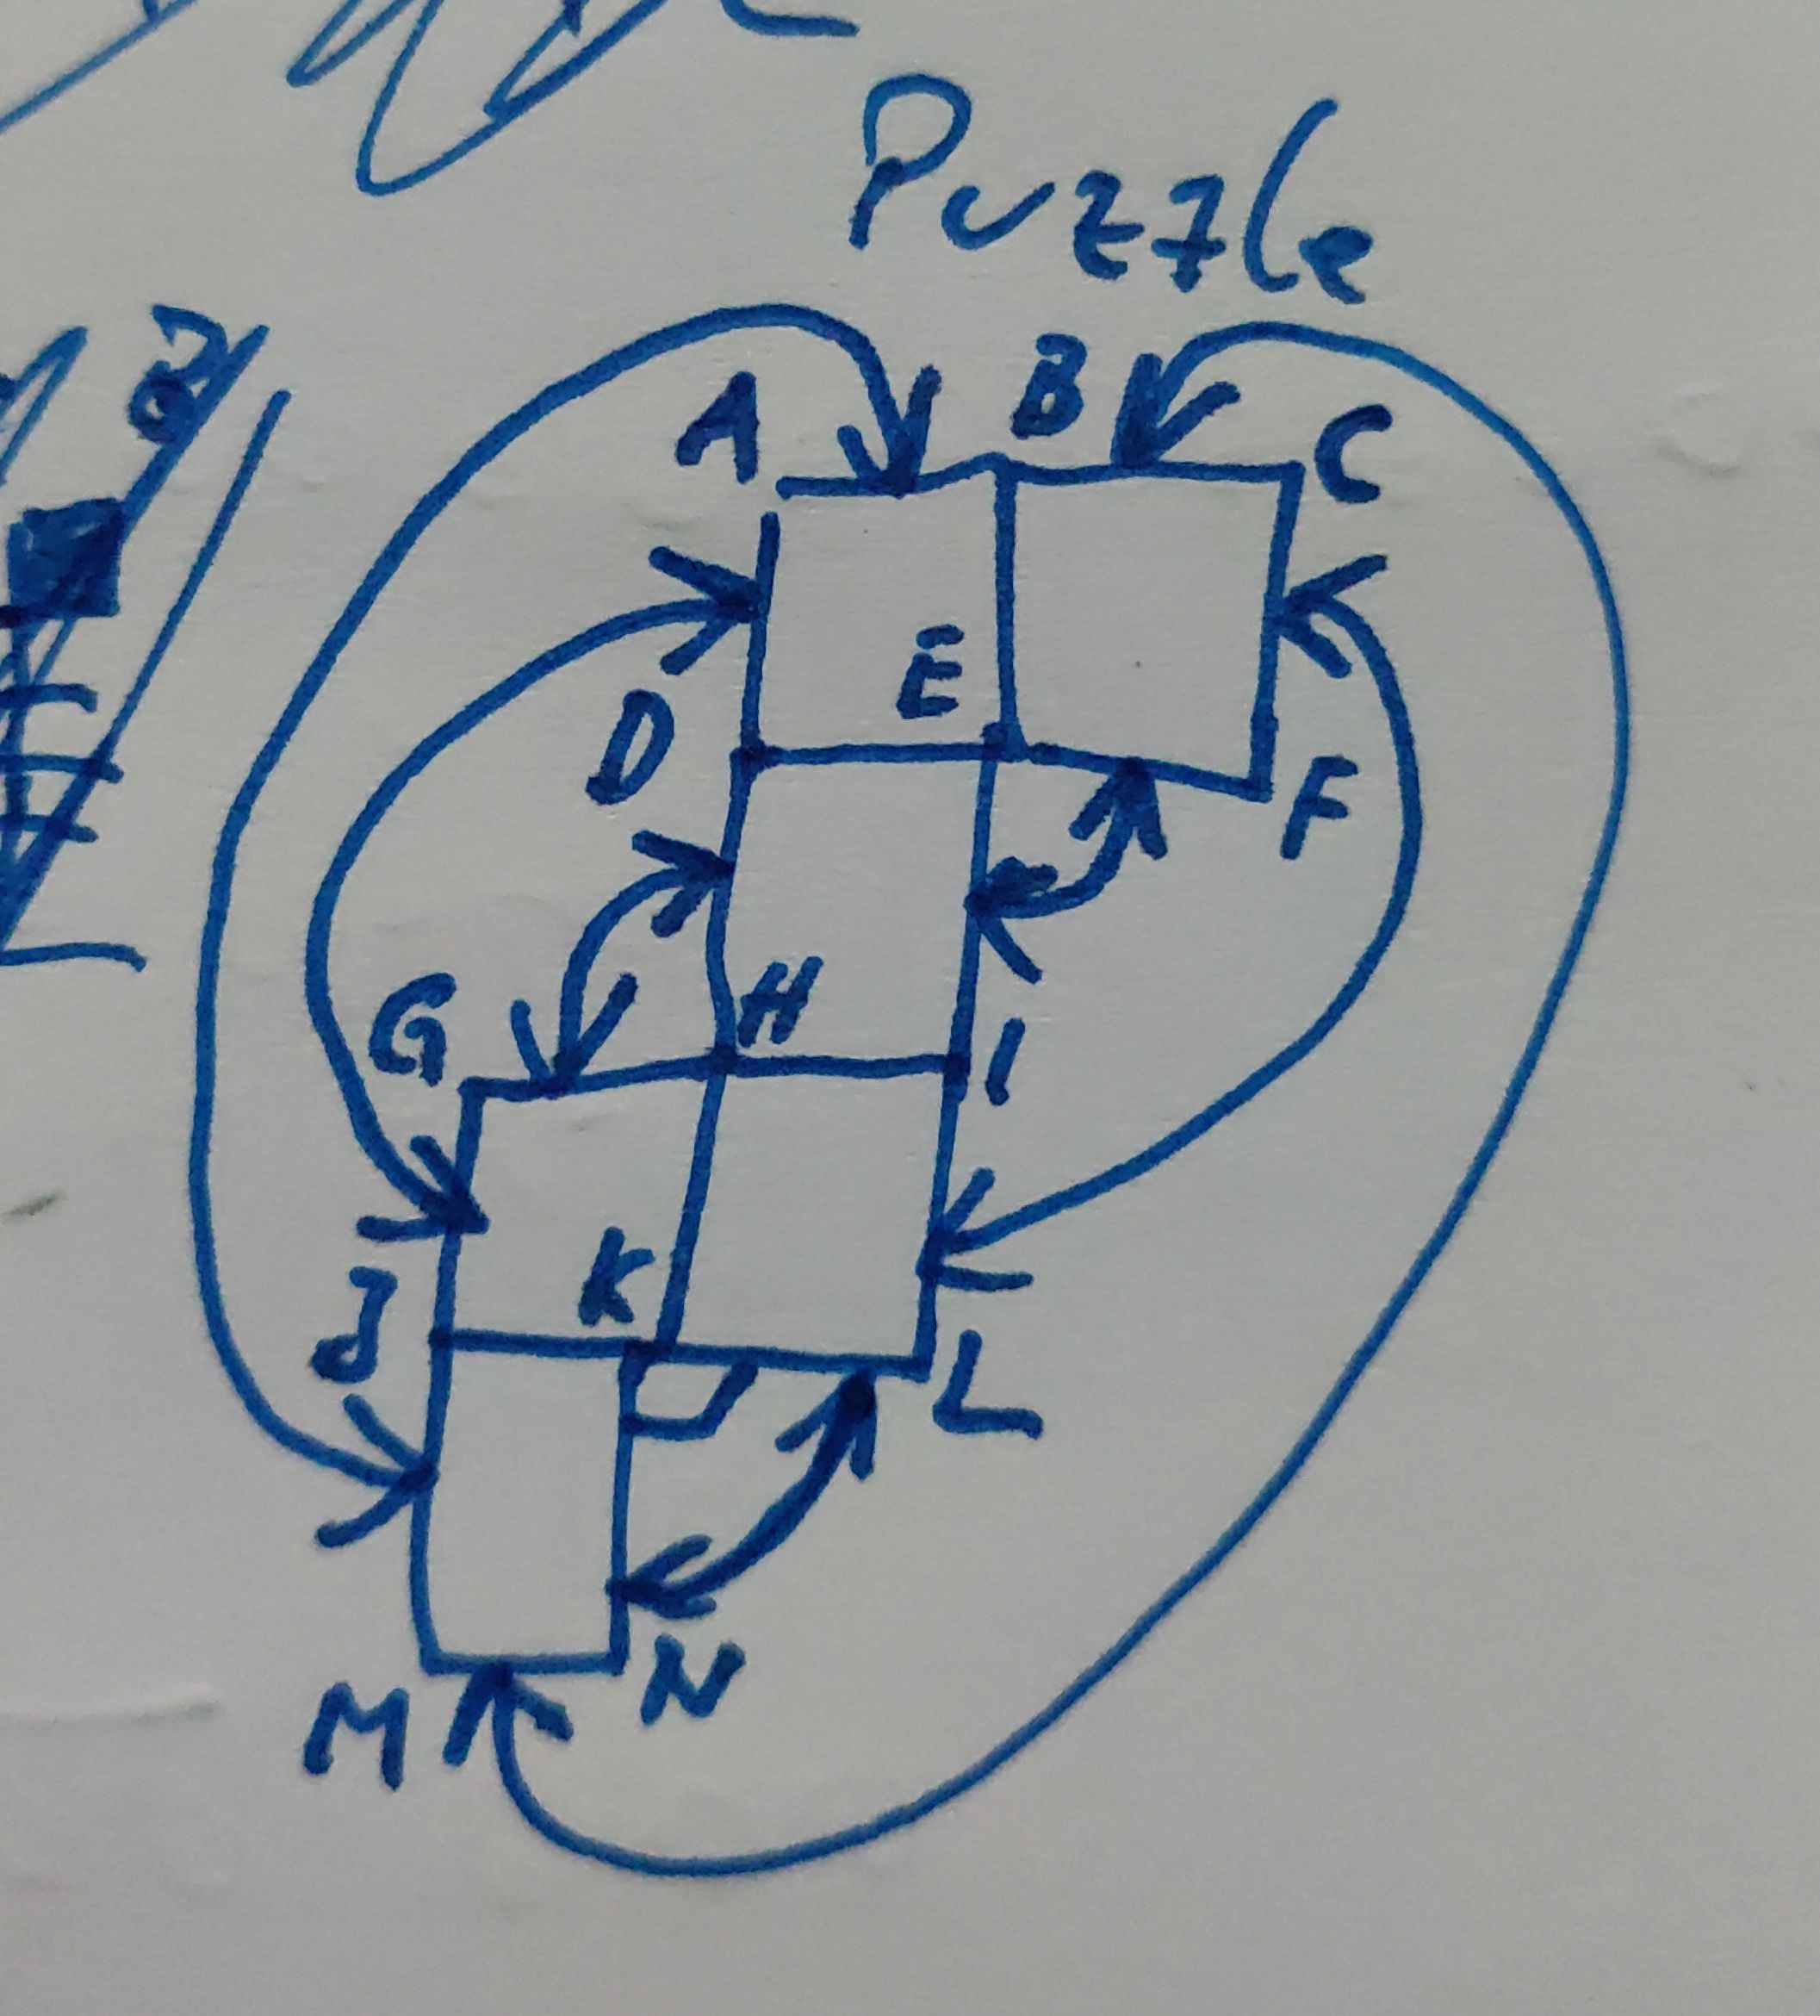 Puzzle
A B C
D E F
G H I
J K L
M N